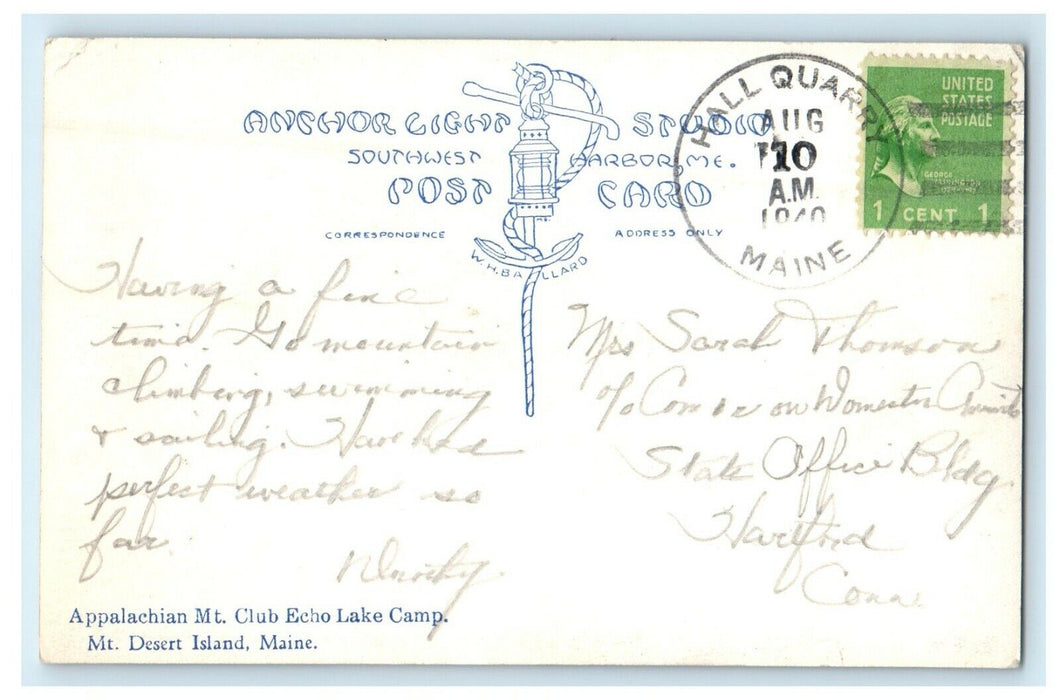 ANCHOR LIGHT STUDIO
SOUTHWEST HARBOR, ME.
POST CARD
CORRESPONDENCE ADDRESS ONLY
W.H. BALLARD
HALL QUARRY
AUG
10
A.M.
1940
MAINE
UNITED
STATES
POSTAGE
GEORGE
WASHINGTON
1 CENT 1
Having a fine
time. Go mountain
climbing, swimming
& sailing. Have had
perfect weather so
far.
Dorothy
Mrs Sarah Thomson
State Office Bldg.
Hartford
Conn.
Appalachian Mt. Club Echo Lake Camp.
Mt. Desert Island, Maine.